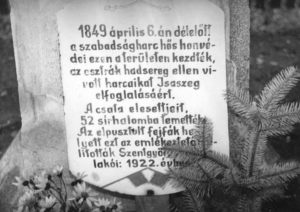 1849 április 6.án délelőtt
a szabadságharc hős honvé-
dei ezen a területen kezdték,
az osztrák hadsereg ellen vi-
vott harcaikat Isaszeg
elfoglalásáért.
A csata elesettjeit,
52 sirhalomba temették
Az elpusztult fejfák he-
lyett ezt az emléktáblá
litották Szentgyör
lakói: 1922. évben